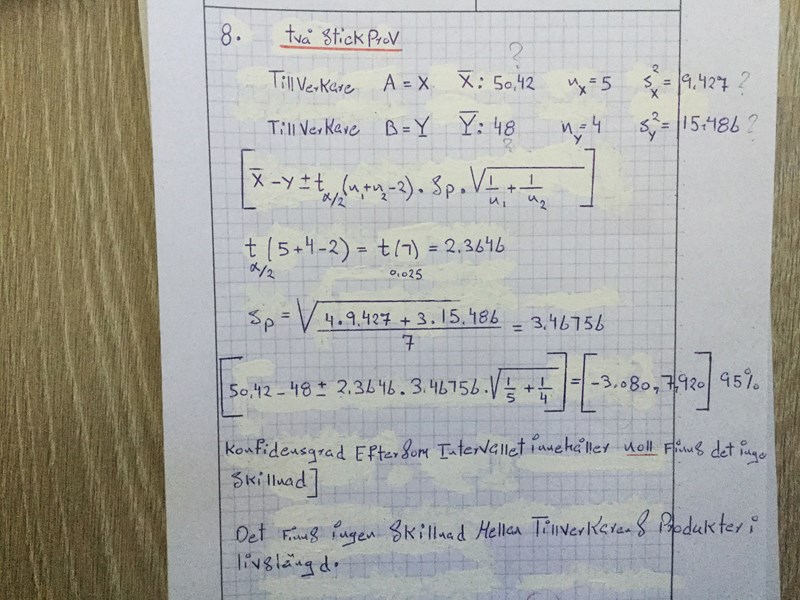 8. två StickProv
?
TillVerKare A = X X̄: 50,42 n_X = 5 s²_X = 9,427 ?
TillVerKare B = Y Ȳ: 48 n_Y = 4 s²_Y = 15,486 ?
?
[X̄ - Y ± t_α/2 (n₁+n₂-2) · Sp · √(1/n₁ + 1/n₂)]
t_α/2 (5+4-2) = t_0,025 (7) = 2,3646
Sp = √((4·9,427 + 3·15,486)/7) = 3,46756
[50,42 - 48 ± 2,3646 · 3,46756 · √(1/5 + 1/4)] = [-3,080, 7,920] 95%
Konfidensgrad Eftersom Intervallet innehåller noll Finns det inge
Skillnad]
Det Finns ingen Skillnad Mellan TillverKarens Produkter i
livslängd.